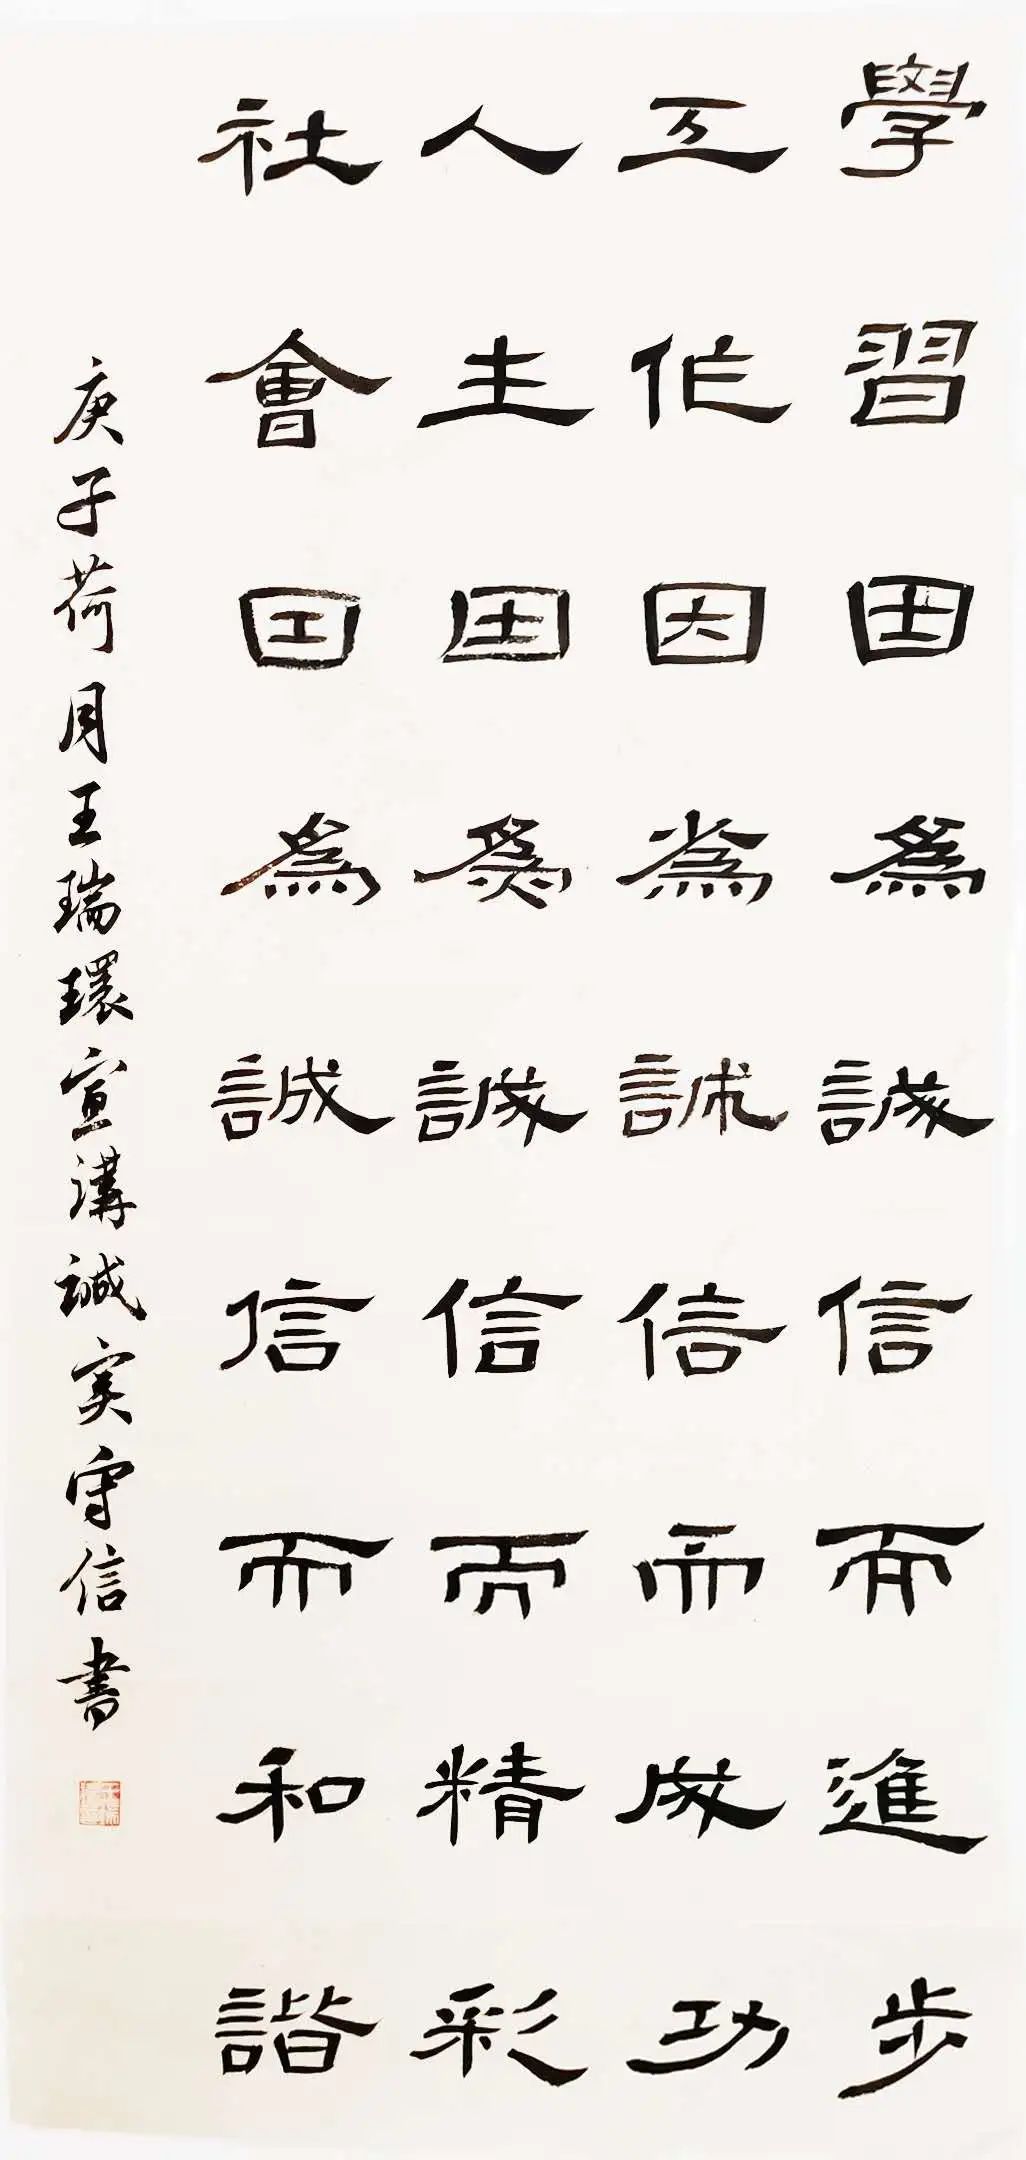 學習因為誠信而進步
工作因為誠信而成功
人生因為誠信而精彩
社會因為誠信而和諧
庚子荷月王瑞環宣講誠実守信書